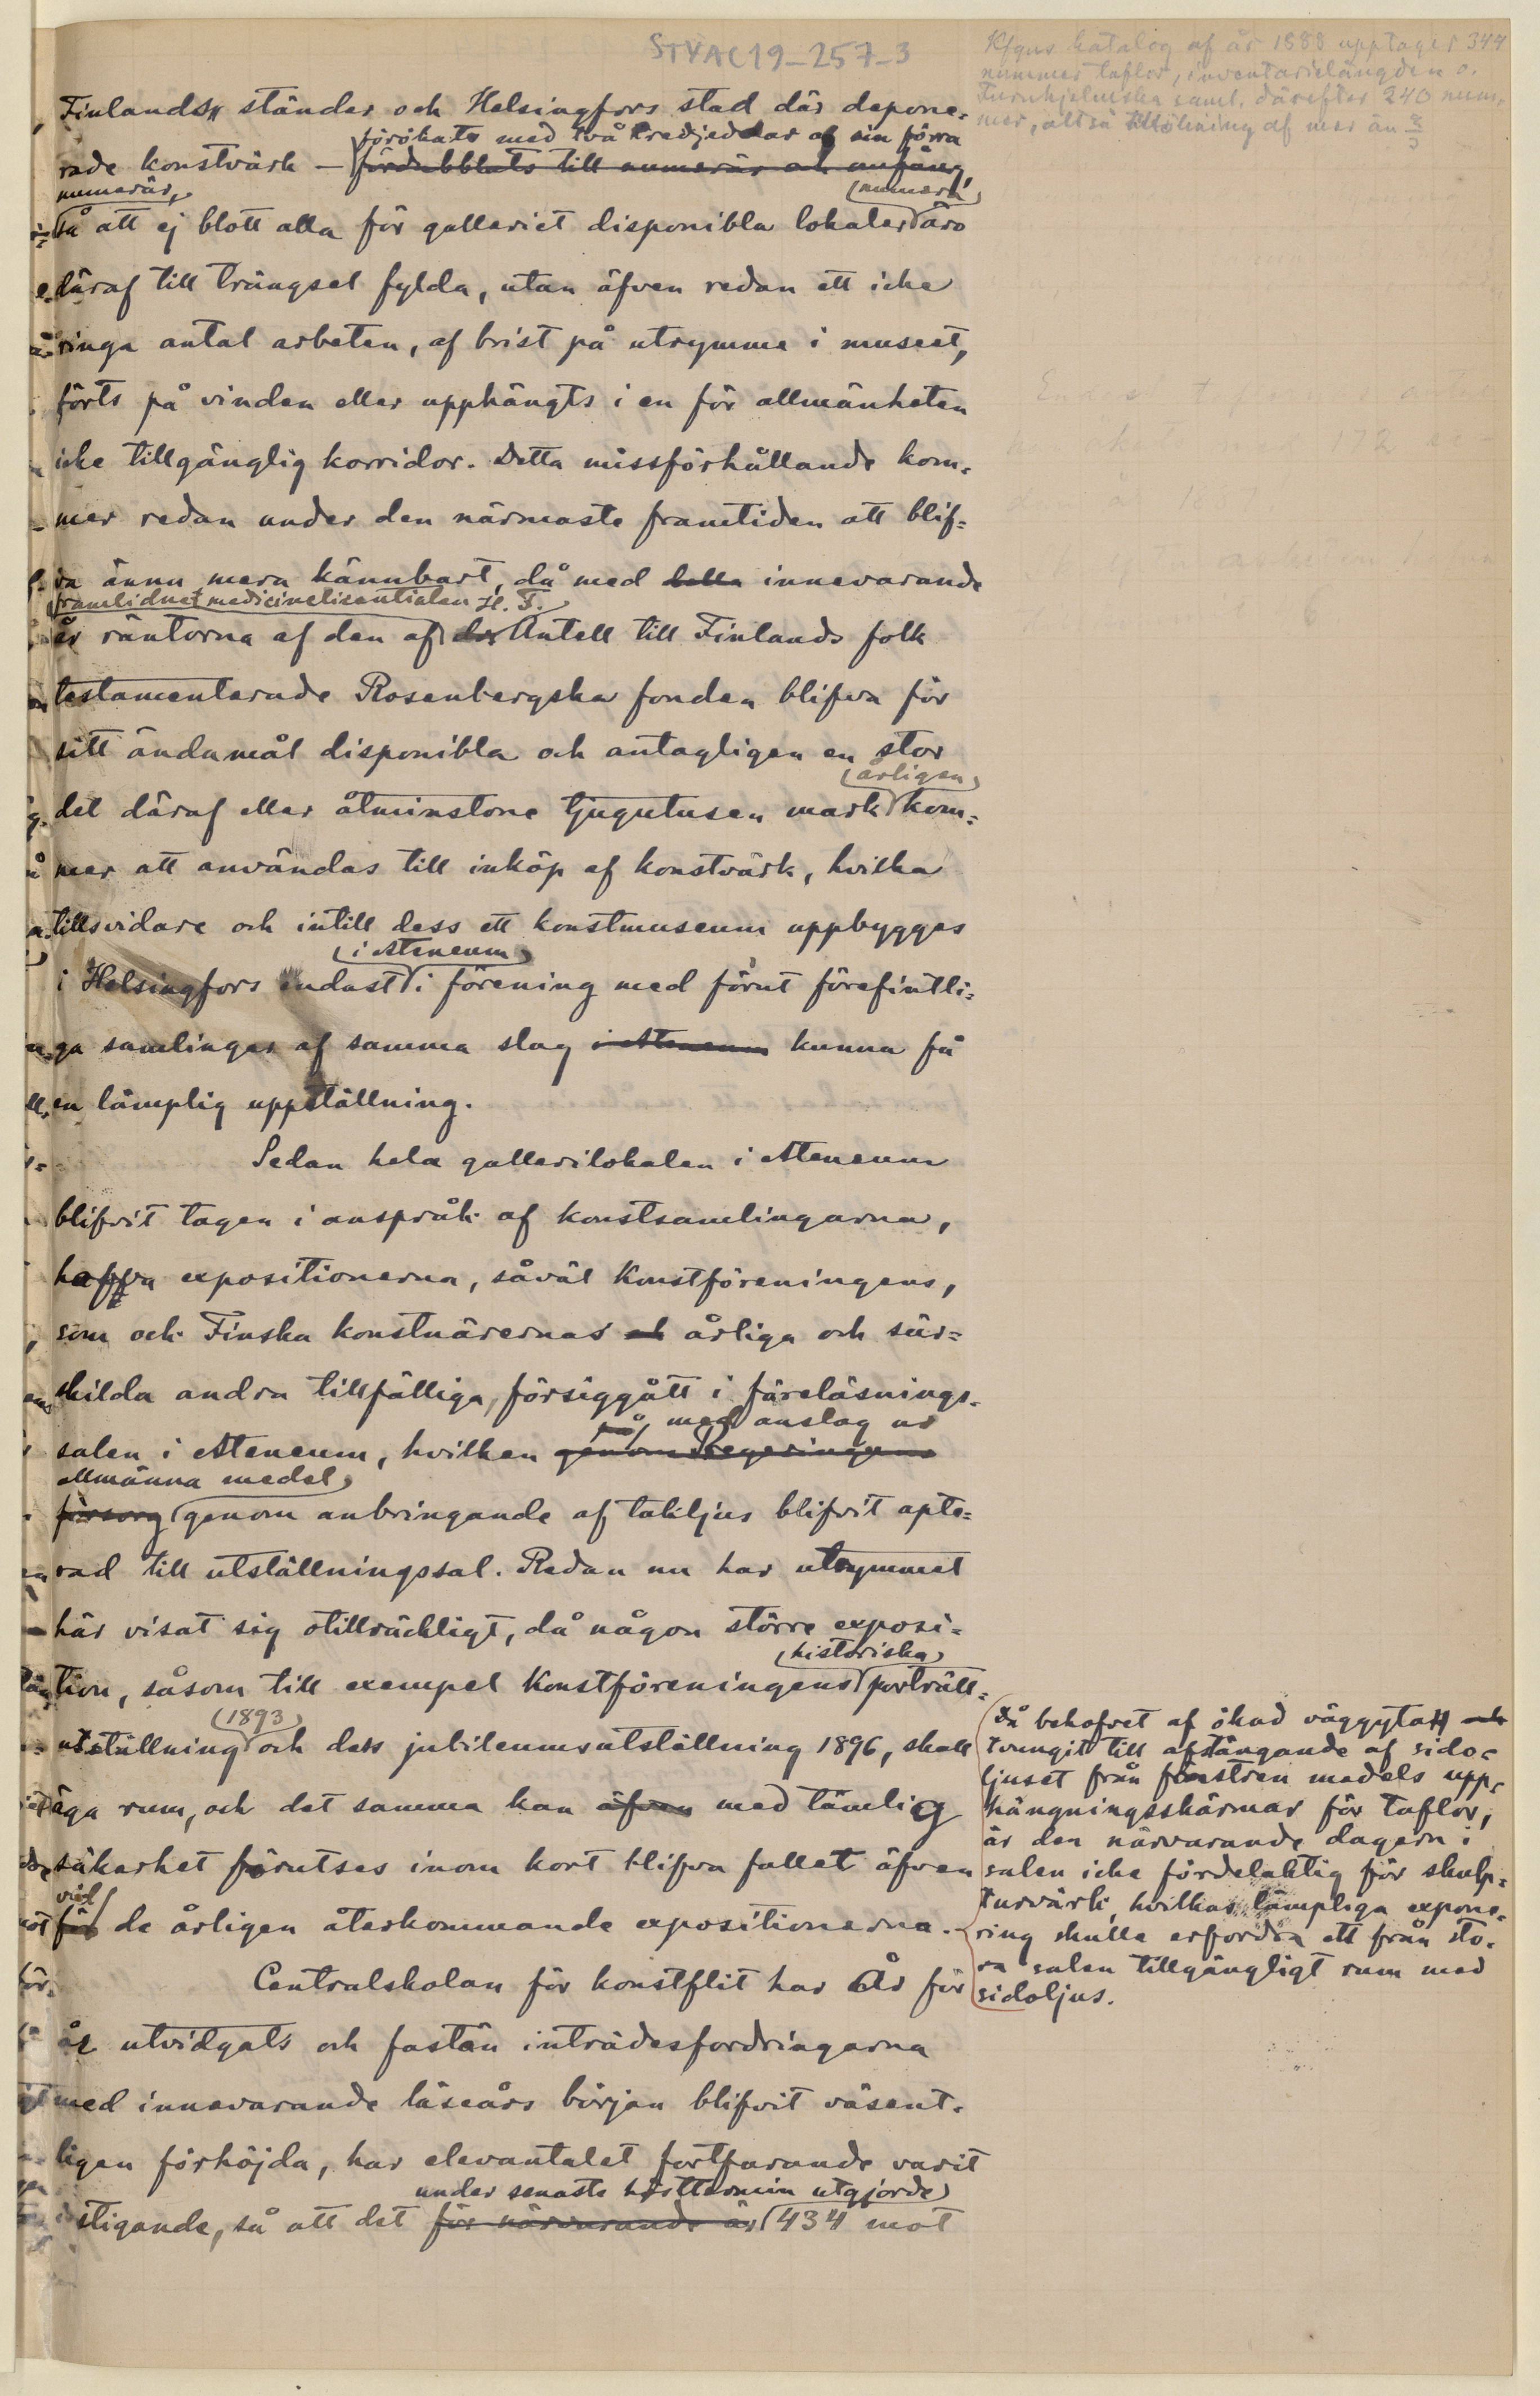 STYAC19-257-3
Kfgns katalog af år 1888 upptager 344
nummer taflor, inventarielängden o.
Furuhjelmska saml. därefter 240 num-
mer, altså tillökning af mer än 2/3
Finlands ständer och Helsingfors stad där depone-
förökats med två tredjedelar af sin förra
rade konstvärk — fördubblats till numerär och omfång,
numerär, numera
så att ej blott alla för galleriet disponibla lokaler äro
däraf till trängsel fylda, utan äfven redan ett icke
ringa antal arbeten, af brist på utrymme i museet,
förts på vinden eller upphängts i en för allmänheten
icke tillgänglig korridor. Detta missförhållande kom-
mer redan under den närmaste framtiden att blif-
va ännu mera kännbart, då med detta innevarande
framlidne medicinelicentiaten H. F.
år räntorna af den af dr Antell till Finlands folk
testamenterade Rosenbergska fonden blifva för
sitt ändamål disponibla och antagligen en stor
årligen
del däraf eller åtminstone tjugutusen mark kom-
mer att användas till inköp af konstvärk, hvilka
tillsvidare och intill dess ett konstmuseum uppbygges
i Ateneum
i Helsingfors endast i förening med förut förefintli-
ga samlingar af samma slag i Ateneum kunna få
en lämplig uppställning.
Sedan hela gallerilokalen i Ateneum
blifvit tagen i anspråk af konstsamlingarna,
hafva expositionerna, såväl Konstföreningens,
som och Finska konstnärernas och årliga och sär-
skilda andra tillfälliga, försiggått i föreläsnings-
på med anslag ur
salen i Ateneum, hvilken genom Regeringens
allmänna medel
försorg genom anbringande af takljus blifvit apte-
rad till utställningssal. Redan nu har utrymmet
här visat sig otillräckligt, då någon större exposi-
historiska
tion, såsom till exempel Konstföreningens porträtt-
1893
utställning och dess jubileumsutställning 1896, skall
äga rum, och det samma kan äfven med tämlig
säkerhet förutses inom kort blifva fallet äfven
vid
för de årligen återkommande expositionerna.
Då behofvet af ökad väggyta och
tvungit till afstängande af sido-
ljuset från fönstren medels upp-
hängningsskärmar för taflor,
är den närvarande dagern i
salen icke fördelaktig för skulp-
turvärk, hvilkas lämpliga expone-
ring skulle erfordra ett från sto-
ra salen tillgängligt rum med
sidoljus.
Centralskolan för konstflit har År för
år utvidgats och fastän inträdesfordringarna
med innevarande läseårs början blifvit väsent-
ligen förhöjda, har elevantalet fortfarande varit
under senaste hösttermin utgjorde
stigande, så att det för närvarande är 434 mot